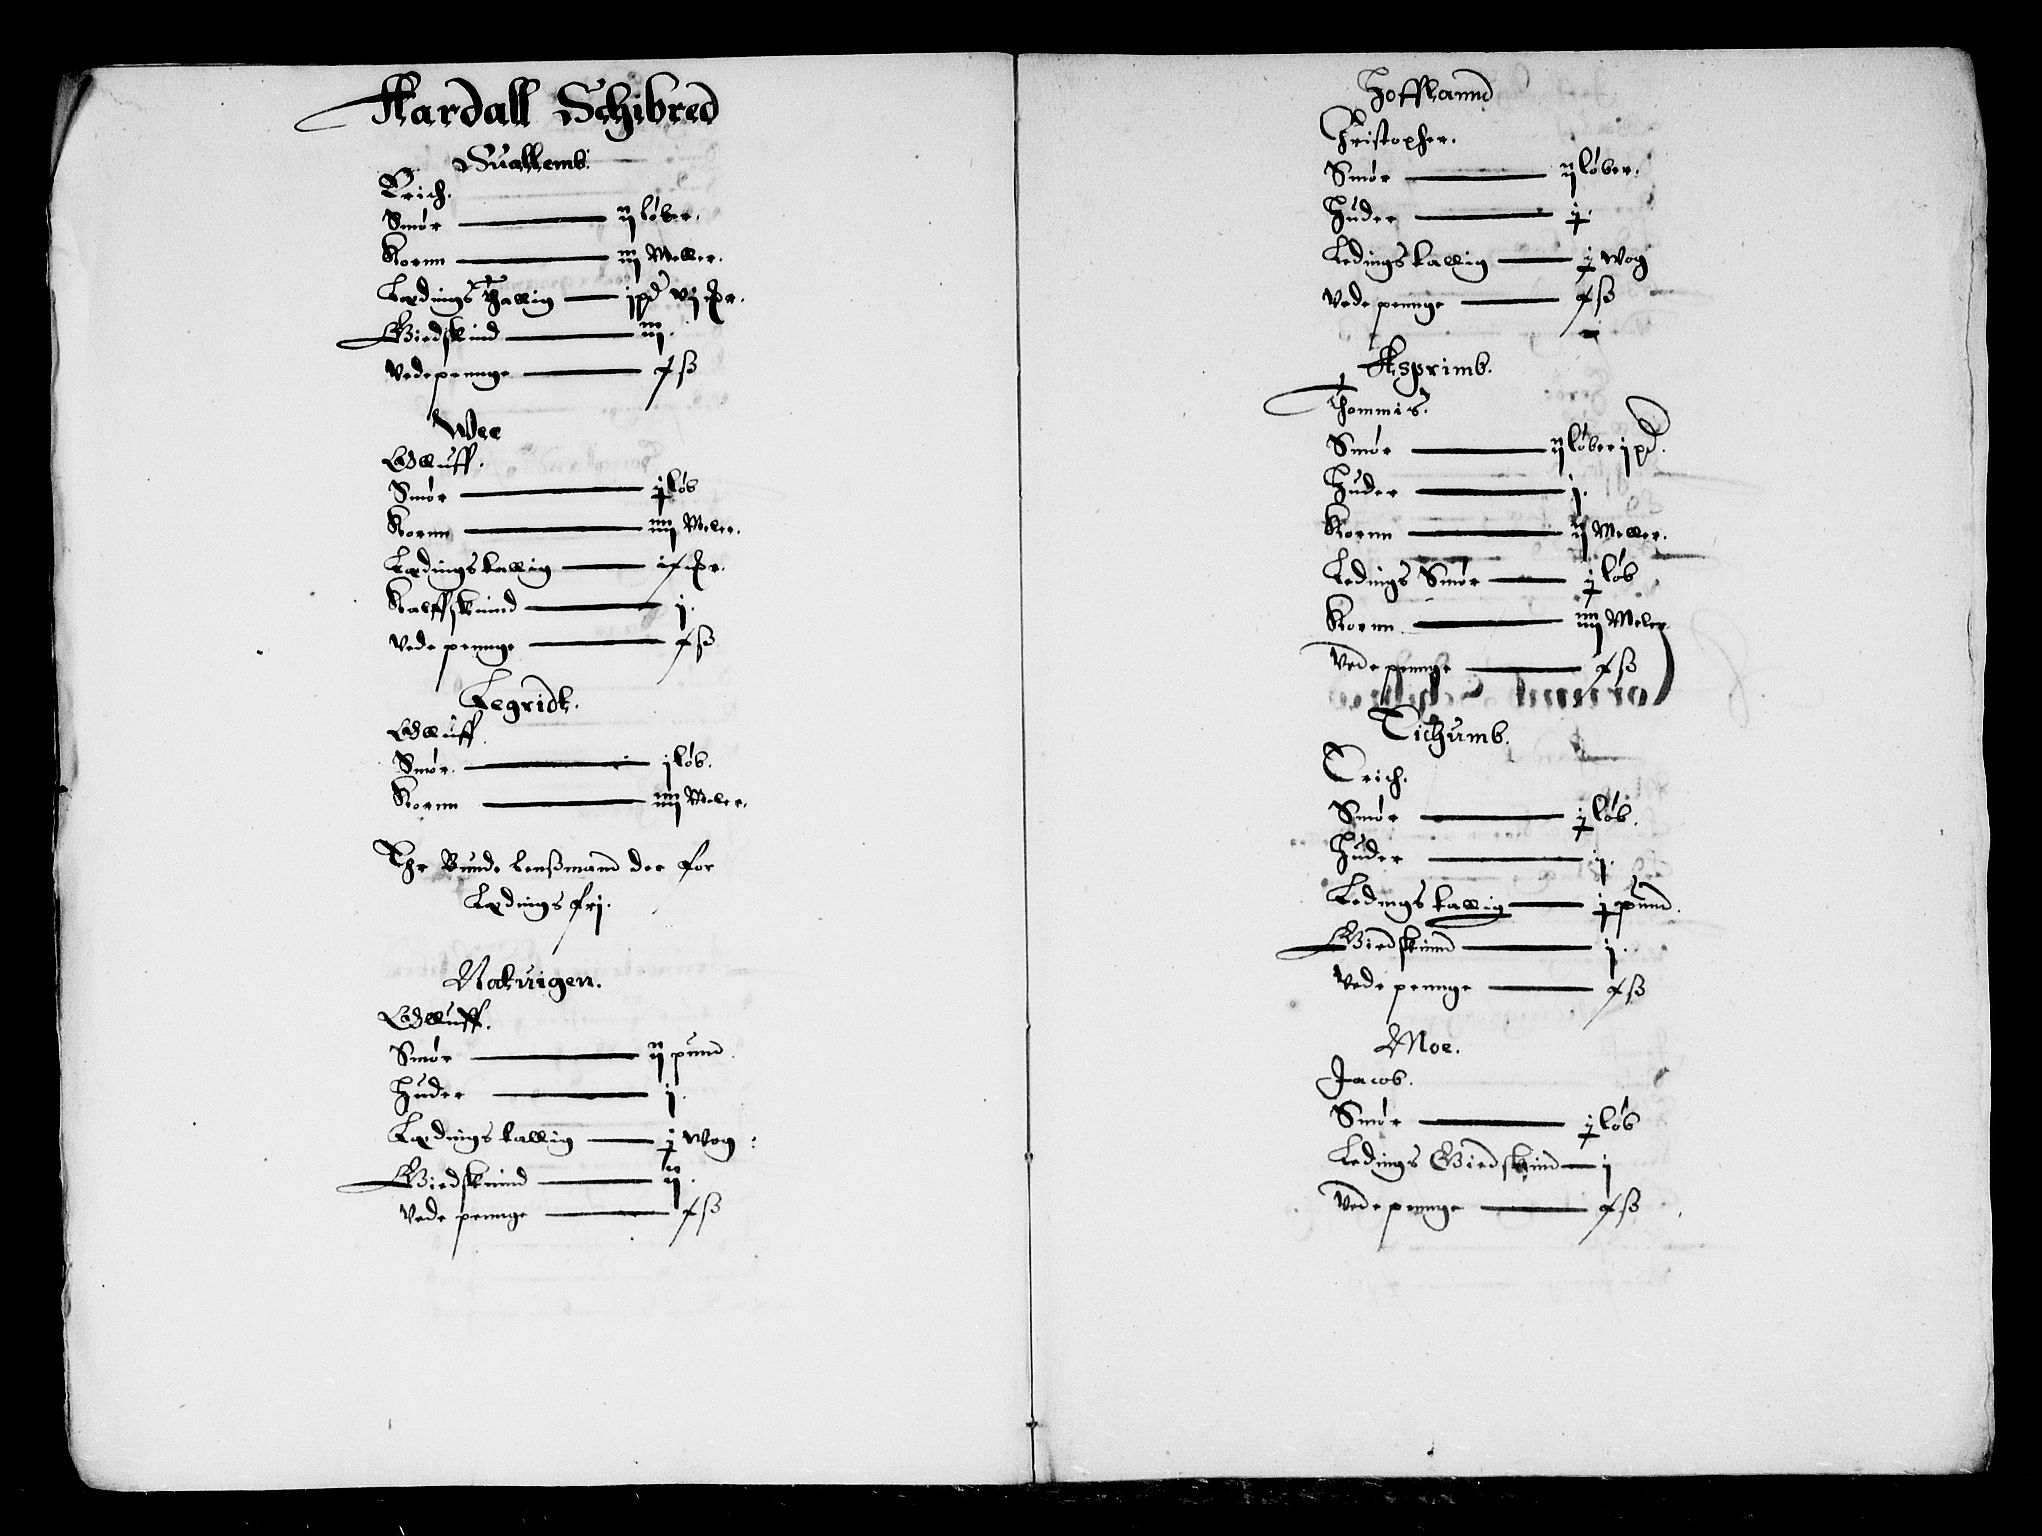 Aardall Schibred
Suallemb.
Erich.
Smør — ij løber.
Kornn — iij Meller.
Lædings Thallig — j pd vj
Giedskind — iij.
Vedepennge — ß
Wee
Oelluff.
Smør — j løb
Kornn — iiij Meler.
Lædings kallig —
Kalffskinnd — j.
Vede pennge — ß
Legridt.
Oelluff.
Smør. — j løb.
Kornn — iiij Meler.
Ehr Bunde Lenßmand der for
Lædings frj.
Natuigen.
Oelluff.
Smør — ij pund.
Huder — j.
Lædings kallig — j wog
Giedskinnd — ij.
Vede pennge — ß
Hofflannd
Christopher.
Smør — ij løber.
Huder — j.
Ledings kallig — j wog
Vede pennge — ß
Asprimb.
Thommis.
Smør — ij løber j pd.
Huder — j.
Kornn — ij Meller.
Ledings Smør — j løb
Kornn — iiij Meler
Vede pennge — ß
Tichumb.
Erich.
Smør — j løb.
Huder — j.
Ledings kallig — j pund.
Giedskinnd — j.
Vede pennge — ß
Moe.
Jacob.
Smør — j løb
Ledings Giedskind — j
Vede pennge — ß